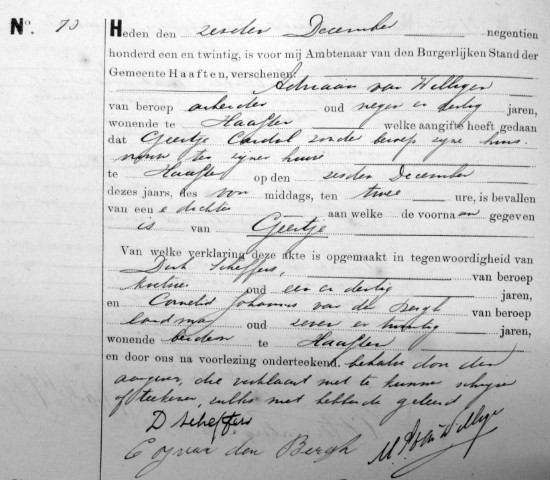 No. 73
Heden den zesden December negentien
honderd een en twintig, is voor mij Ambtenaar van den Burgerlijken Stand der
Gemeente Haaften, verschenen:
Adriaan van Willigen
van beroep arbeider oud negen en dertig jaren,
wonende te Haaften welke aangifte heeft gedaan
dat Geertje Cardol zonder beroep zijne huis-
vrouw ten zijnen huize
te Haaften op den zesden December
dezes jaars, des voor middags, ten twee ure, is bevallen
van een e dochter aan welke de voornaam gegeven
is van Geertje
Van welke verklaring deze akte is opgemaakt in tegenwoordigheid van
Dirk Scheffers, van beroep
oud een en dertig jaren,
en Cornelis Johannes van den Bergh van beroep
landman oud zeven en twintig jaren,
wonende beiden te Haaften
en door ons na voorlezing onderteekend behalve door den
aangever, die verklaart niet te kunnen schrijven
of teekenen, zulks niet hebbende geleerd
D Scheffers
C J van den Bergh